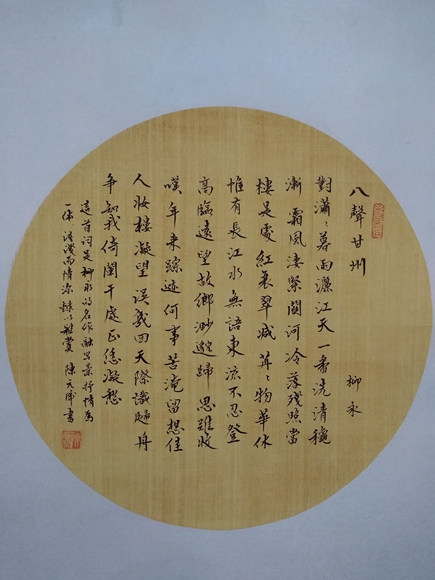 八聲甘州
柳永
對瀟〻暮雨灑江天一番洗清穐
漸霜風淒緊關河冷落殘照當
樓是處紅衰翠減苒〻物華休
惟有長江水無語東流不忍登
高臨遠望故鄉渺邈歸思難收
嘆年来踪迹何事苦淹留想佳
人妆樓凝望誤幾回天際識歸舟
争知我倚闌干處正恁凝愁
這首詞是柳永的名作融寫景抒情爲
一体浪漫而情深 賞 陳元 書